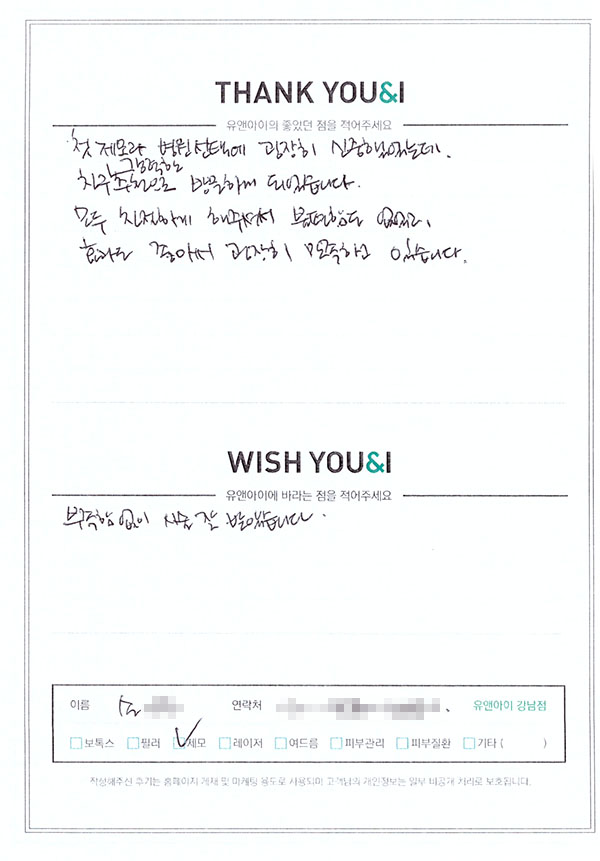 THANK YOU&I
유앤아이의 좋았던 점을 적어주세요
첫 제모라 병원선택에 굉장히 신중했었는데,
친구 강력한 추천으로 방문하게 되었습니다.
모두 친절하게 해주셔서 불편함도 없었고,
효과도 좋아서 굉장히 만족하고 있습니다.
WISH YOU&I
유앤아이에 바라는 점을 적어주세요
부족함 없이 시술 잘 받았습니다.
이름 연락처 유앤아이 강남점
보톡스 필러 제모 레이저 여드름 피부관리 피부질환 기타 ( )
작성해주신 후기는 홈페이지 게재 및 마케팅 용도로 사용되며 고객님의 개인정보는 일부 비공개 처리로 보호됩니다.